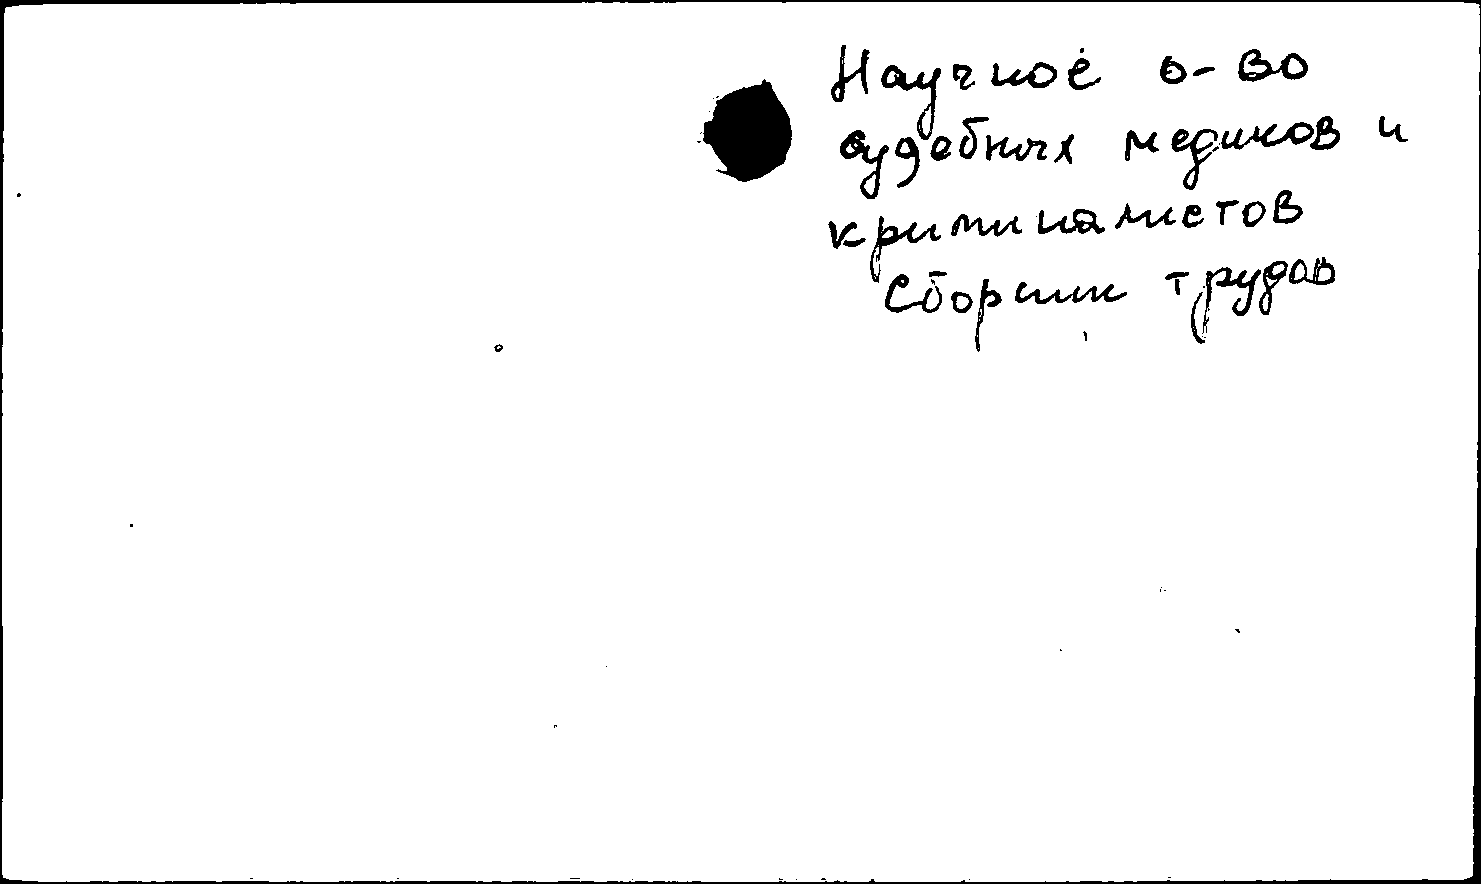 Научное о-во
судебных медиков и
криминалистов
Сборник трудов